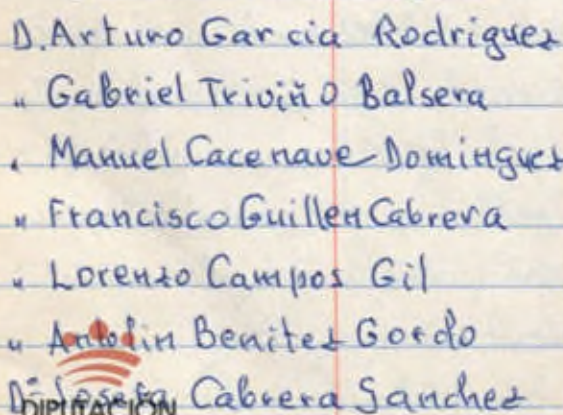 D. Arturo Garcia Rodriguez
" Gabriel Triviño Balsera
" Manuel Cacenave Dominguez
" Francisco Guillen Cabrera
" Lorenzo Campos Gil
" Antolin Benitez Gordo
Dª Josefa Cabrera Sanchez
DIPUTACIÓN